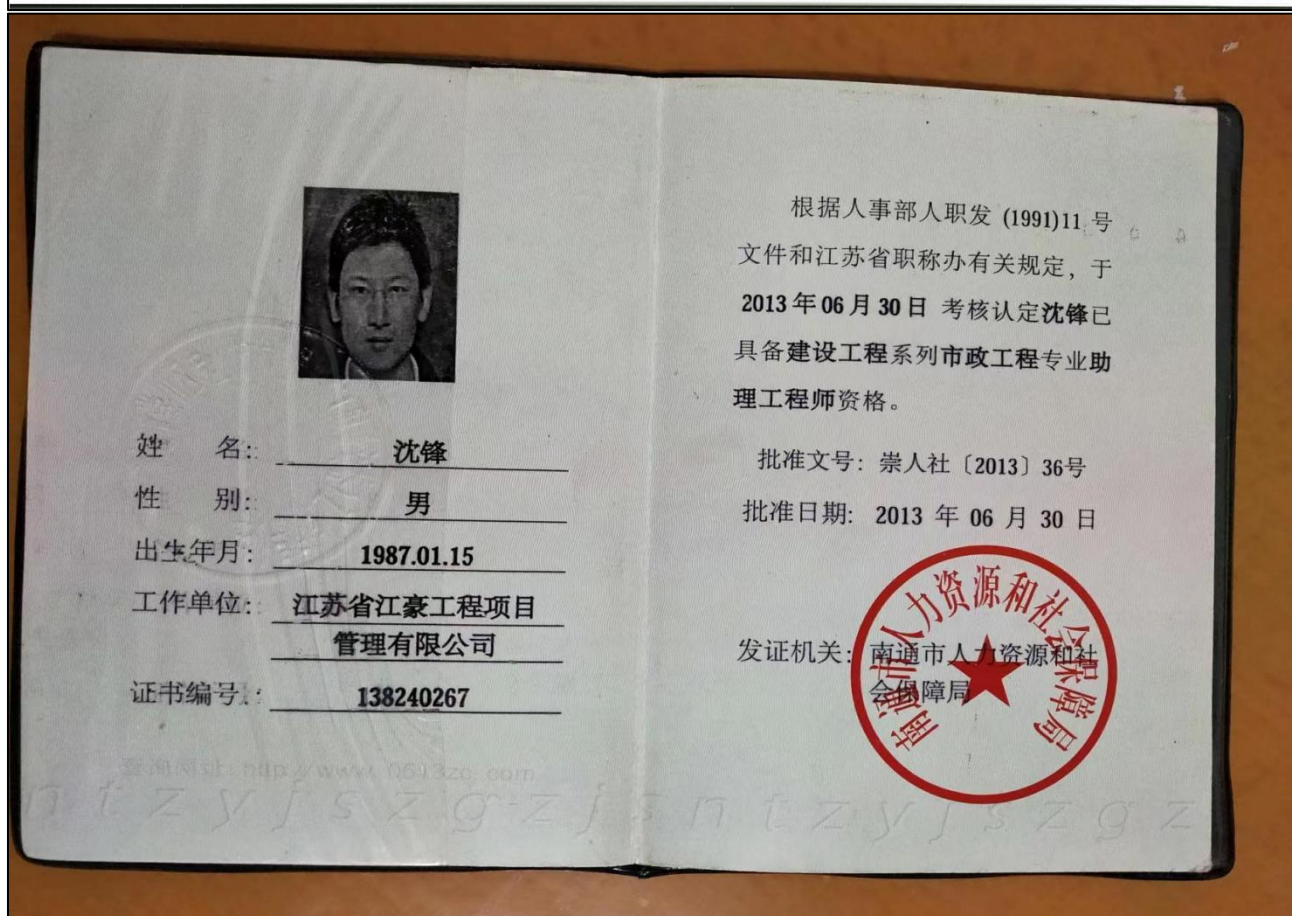 姓 名: 沈锋
性 别: 男
出生年月: 1987.01.15
工作单位: 江苏省江豪工程项目
管理有限公司
证书编号: 138240267
查询网址: http://www.0513zc.com
ntzyjszgzjsntzyjszgz
根据人事部人职发 (1991)11 号
文件和江苏省职称办有关规定, 于
2013 年 06 月 30 日 考核认定沈锋已
具备建设工程系列市政工程专业助
理工程师资格。
批准文号: 崇人社〔2013〕36号
批准日期: 2013 年 06 月 30 日
发证机关: 南通市人力资源和社
会保障局
南通市人力资源和社会保障局